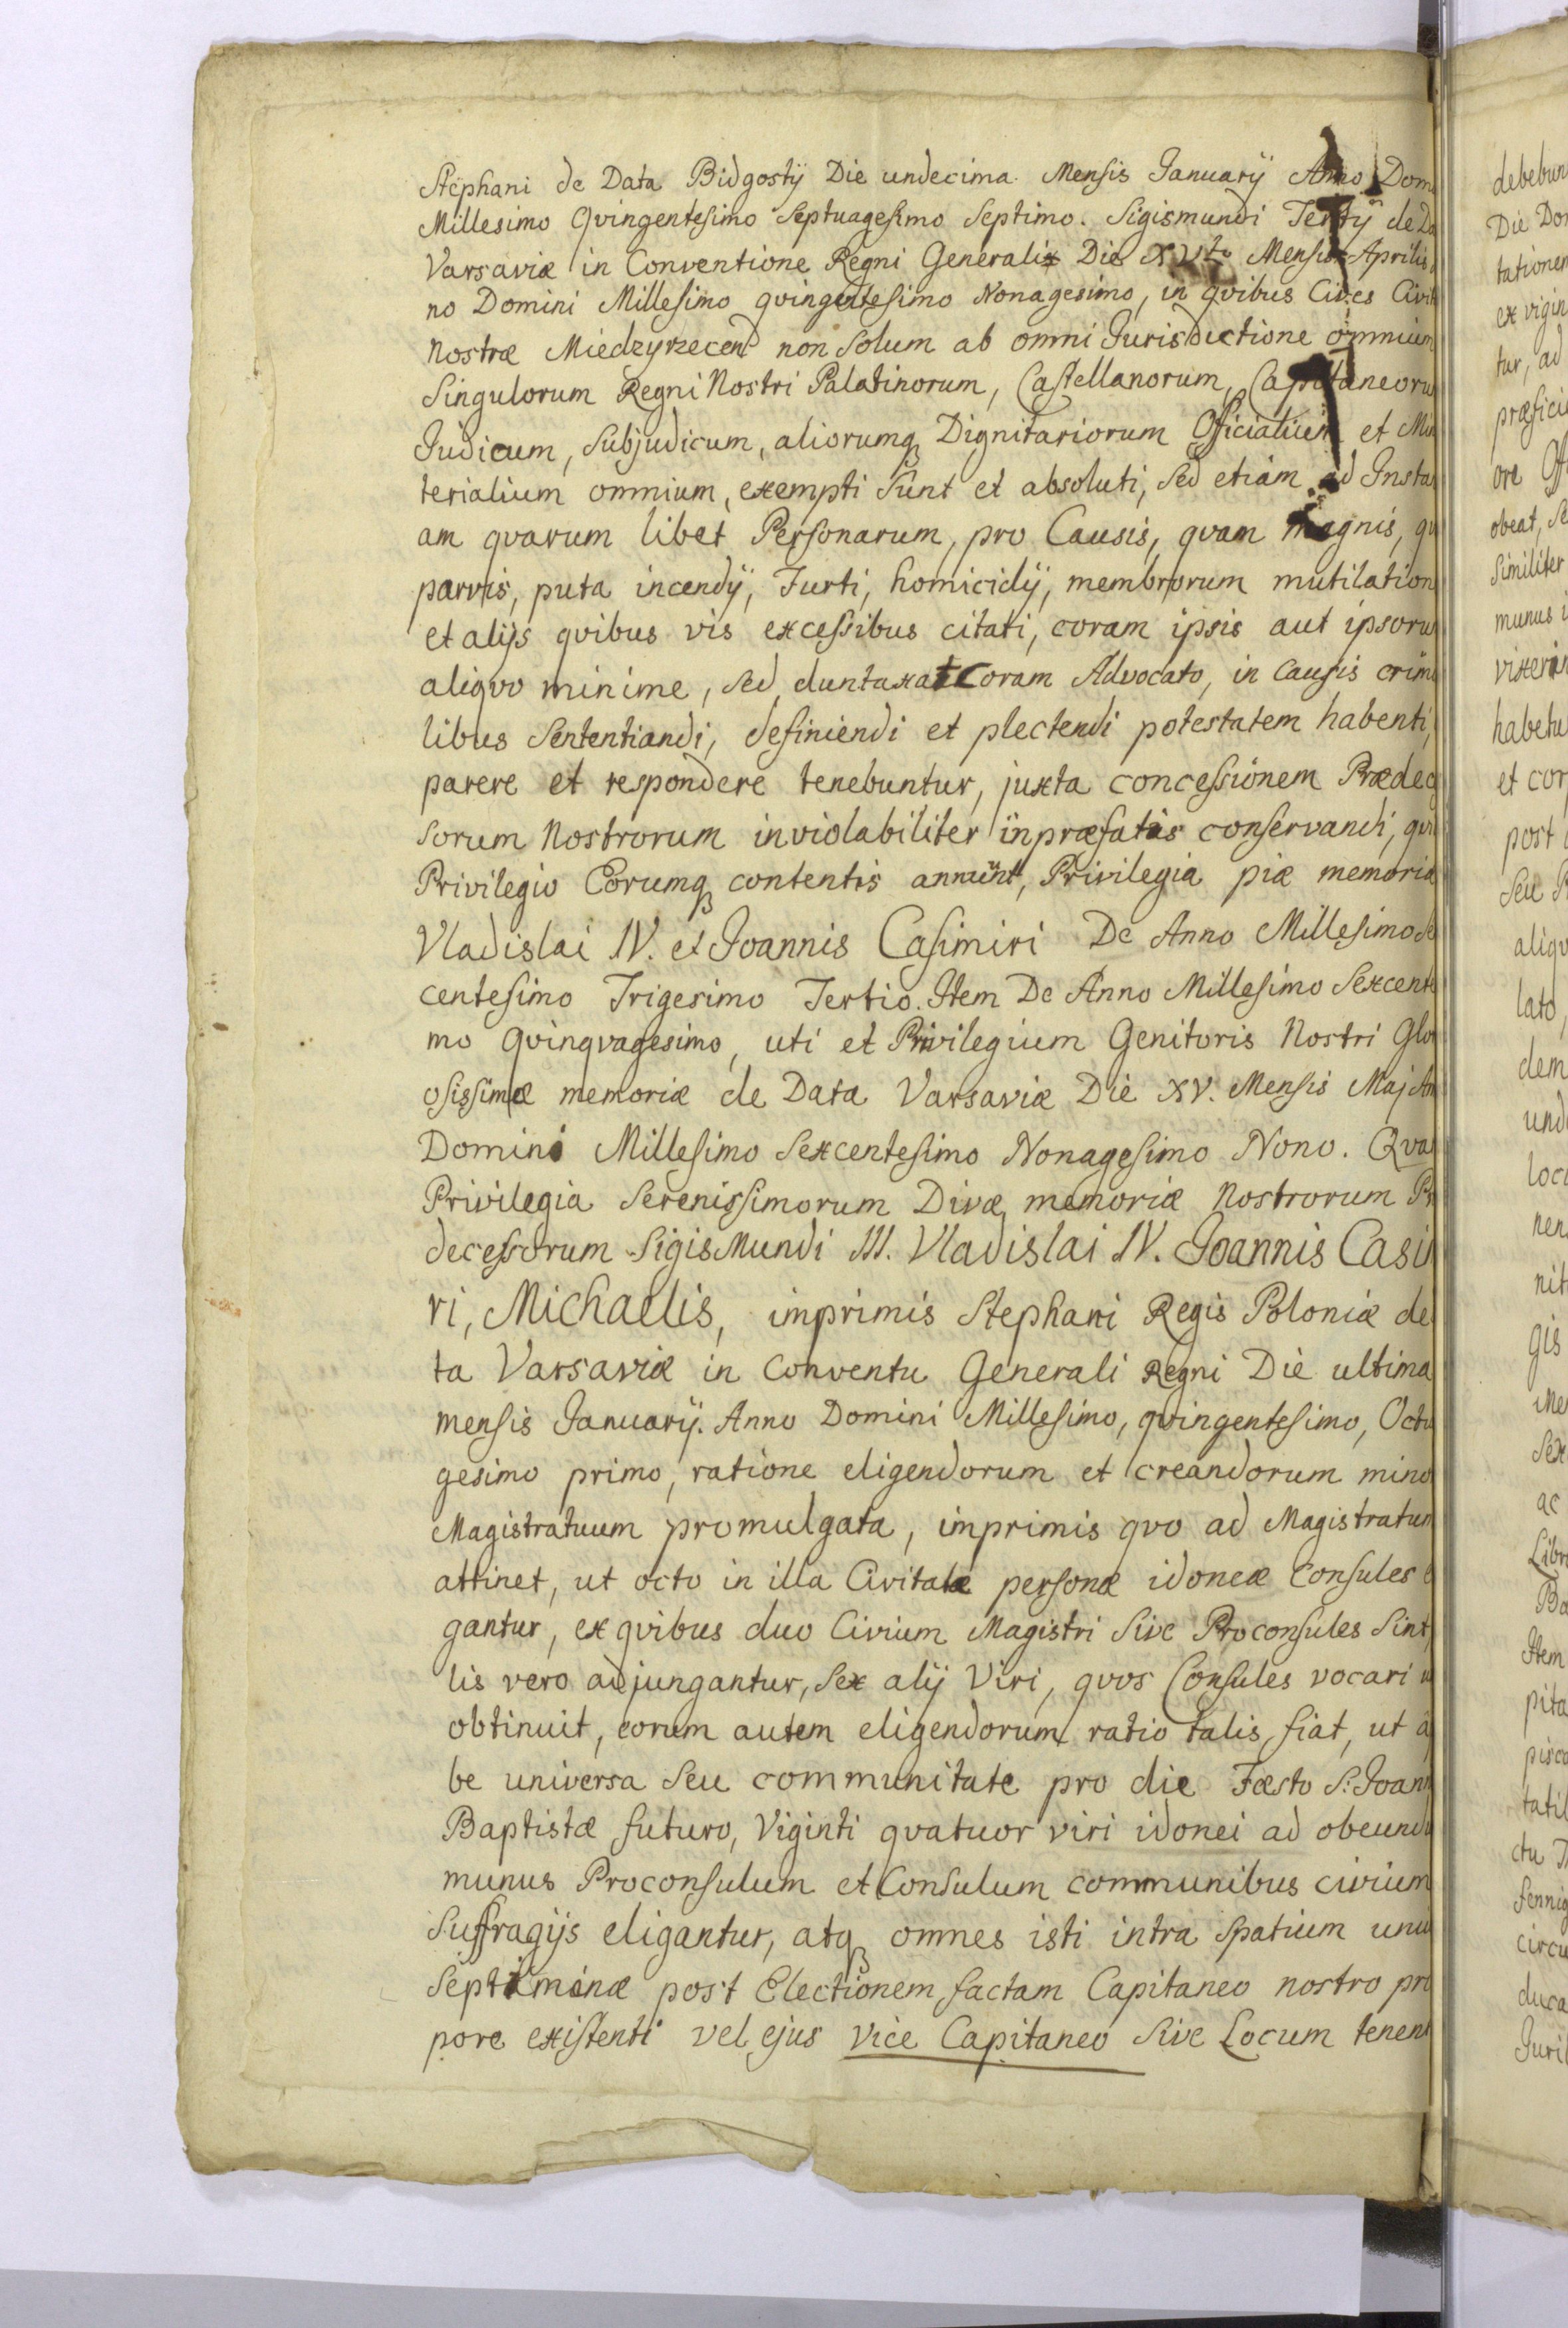 Stephani de Data Bidgostÿ Die undecima Mensis Januarÿ Anno Dom
Millesimo Qvingentesimo Septuagesimo Septimo. Sigismundi Tertÿ de Da
Varsaviæ in Conventione Regni Generali Die XVto Mensis Aprilis
no Domini Millesimo qvingentesimo Nonagesimo, in qvibus Cives Civit
Nostræ Miedzyrzecen non solum ab omni Jurisdictione omnium
Singulorum Regni Nostri Palatinorum, Castellanorum, Capitaneoru
Judicum, Subjudicum, aliorumq Dignitariorum Officialium et Min
terialium omnium, exempti sunt et absoluti, sed etiam ad Insta
am qvarum libet Personarum, pro Causis, qvam magnis, qv
parvis, puta incendÿ, Furti, homicidÿ, membrorum mutilation
et alÿs qvibus vis excessibus citati, coram ipsis aut ipsoru
aliqvo minime, sed duntaxat Coram Advocato, in Causis crimi
libus Sententiandi, definiendi et plectendi potestatem habenti,
parere et respondere tenebuntur, juxta concessionem Prædec
sorum Nostrorum inviolabiliter in præfatis conservandi, qvi
Privilegio Eorumq contentis annuunt, Privilegia piæ memoriæ
Vladislai IV. et Joannis Casimiri De Anno Millesimo Se
centesimo Trigesimo Tertio. Item De Anno Millesimo Sexcente
mo Qvinqvagesimo, uti et Privilegium Genitoris Nostri Glor
osissimæ memoriæ de Data Varsaviæ Die XV. Mensis Maj An
Domini Millesimo Sexcentesimo Nonagesimo Nono. Qvas
Privilegia Serenissimorum Divæ memoriæ Nostrorum Pr
decessorum SigisMundi III. Vladislai IV. Joannis Casim
ri, Michaelis, imprimis Stephani Regis Poloniæ de
ta Varsaviæ in Conventu Generali Regni Die ultima
mensis Januarÿ. Anno Domini Millesimo, qvingentesimo, Octu
gesimo primo, ratione eligendorum et creandorum mino
Magistratuum promulgata, imprimis qvo ad Magistratum
attinet, ut octo in illa Civitate personæ idoneæ Consules e
gantur, ex qvibus duo Civium Magistri Sive Proconsules Sint,
lis vero adjungantur, Sex alÿ Viri, qvos Consules vocari u
obtinuit, eorum autem eligendorum ratio talis fiat, ut a
be universa Seu communitate pro die Fæsto S: Joann
Baptistæ futuro, Viginti qvatuor viri idonei ad obeundu
munus Proconsulum et Consulum communibus civium
Suffragÿs eligantur, atq omnes isti intra Spatium uniu
Septimanæ post Electionem factam Capitaneo nostro pro
pore existenti vel ejus vice Capitaneo Sive Locum tenent
debebun
Die Do
tationem
ex vigin
tur, ad
præfici
ore Off
obeat, Se
Similiter
munus i
vixerin
habetu
et cor
post
Seu P
aliqv
lato,
dem
und
loc
nen
nit
gis
me
Sex
ac
Libr
Ba
Item
pita
pisc
tatib
ctu
fennig
circu
duca
Juri